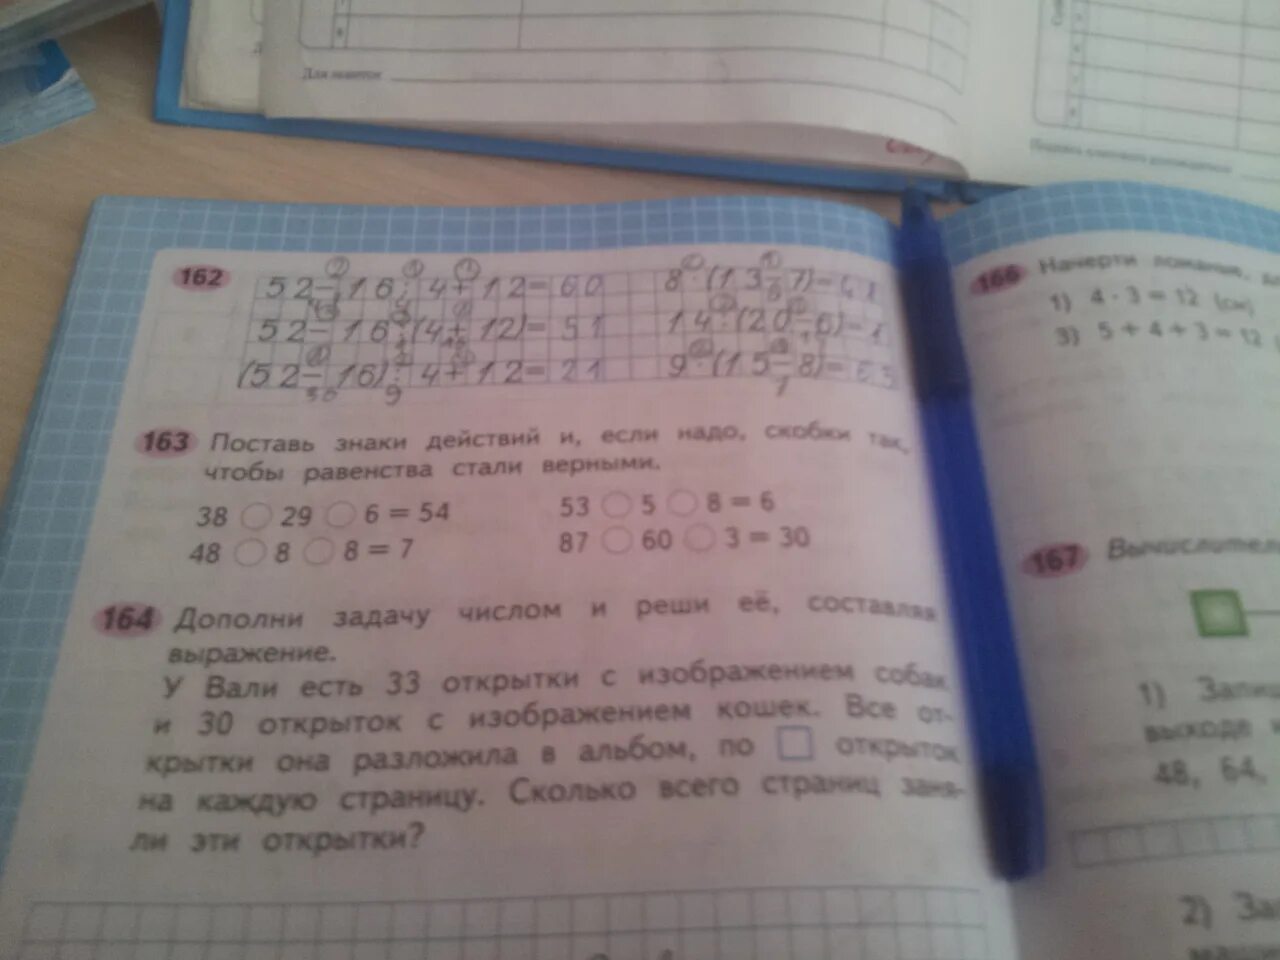 Для заметок
162
52 - 16 : 4 + 12 = 60
52 - 16 : (4 + 12) = 51
(52 - 16) : 4 + 12 = 21
8 · (13 - 7) = 48
14 : (20 - 6) = 1
9 · (15 - 8) = 63
163 Поставь знаки действий и, если надо, скобки так,
чтобы равенства стали верными.
38 ○ 29 ○ 6 = 54
53 ○ 5 ○ 8 = 6
48 ○ 8 ○ 8 = 7
87 ○ 60 ○ 3 = 30
164 Дополни задачу числом и реши её, составляя
выражение.
У Вали есть 33 открытки с изображением собак
и 30 открыток с изображением кошек. Все от-
крытки она разложила в альбом, по □ открыток
на каждую страницу. Сколько всего страниц заня-
ли эти открытки?
166 Начерти ломаные,
1) 4 · 3 = 12 (см)
3) 5 + 4 + 3 = 12
167 Вычислитель
1) Запи
выходе
48, 64,
2) За